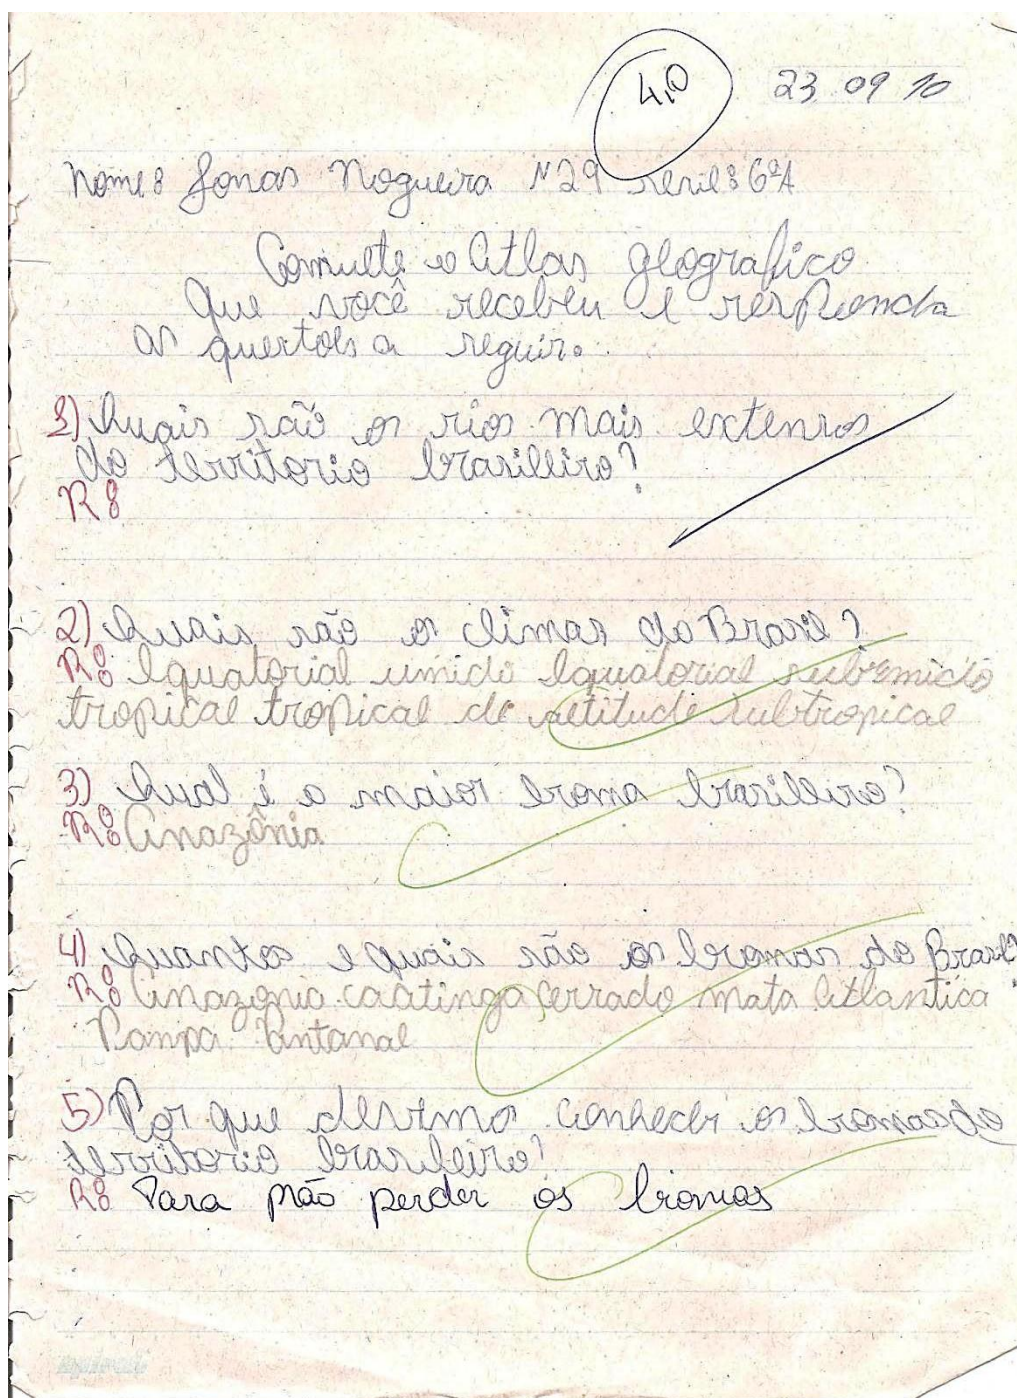 4,0 23 09 10
Nome: Jonas Nogueira N29 serie: 6ªA
Consulte o Atlas geografico
que você recebeu e responda
as questoes a seguir.
1) Quais são os rios mais extensos
do territorio brasilleiro?
R:
2) Quais são os climas do Brasil?
R: Equatorial umido Equatorial subumido
tropical tropical de altitude subtropical
3) Qual é o maior bioma brasilleiro?
R: Amazônia
4) Quantos e quais são os biomas do Brasil?
R: Amazonia caatinga cerrado mata Atlantica
Pampa Pantanal
5) Por que devemos conhecer os biomas do
territorio brasileiro?
R: Para não perder os biomas